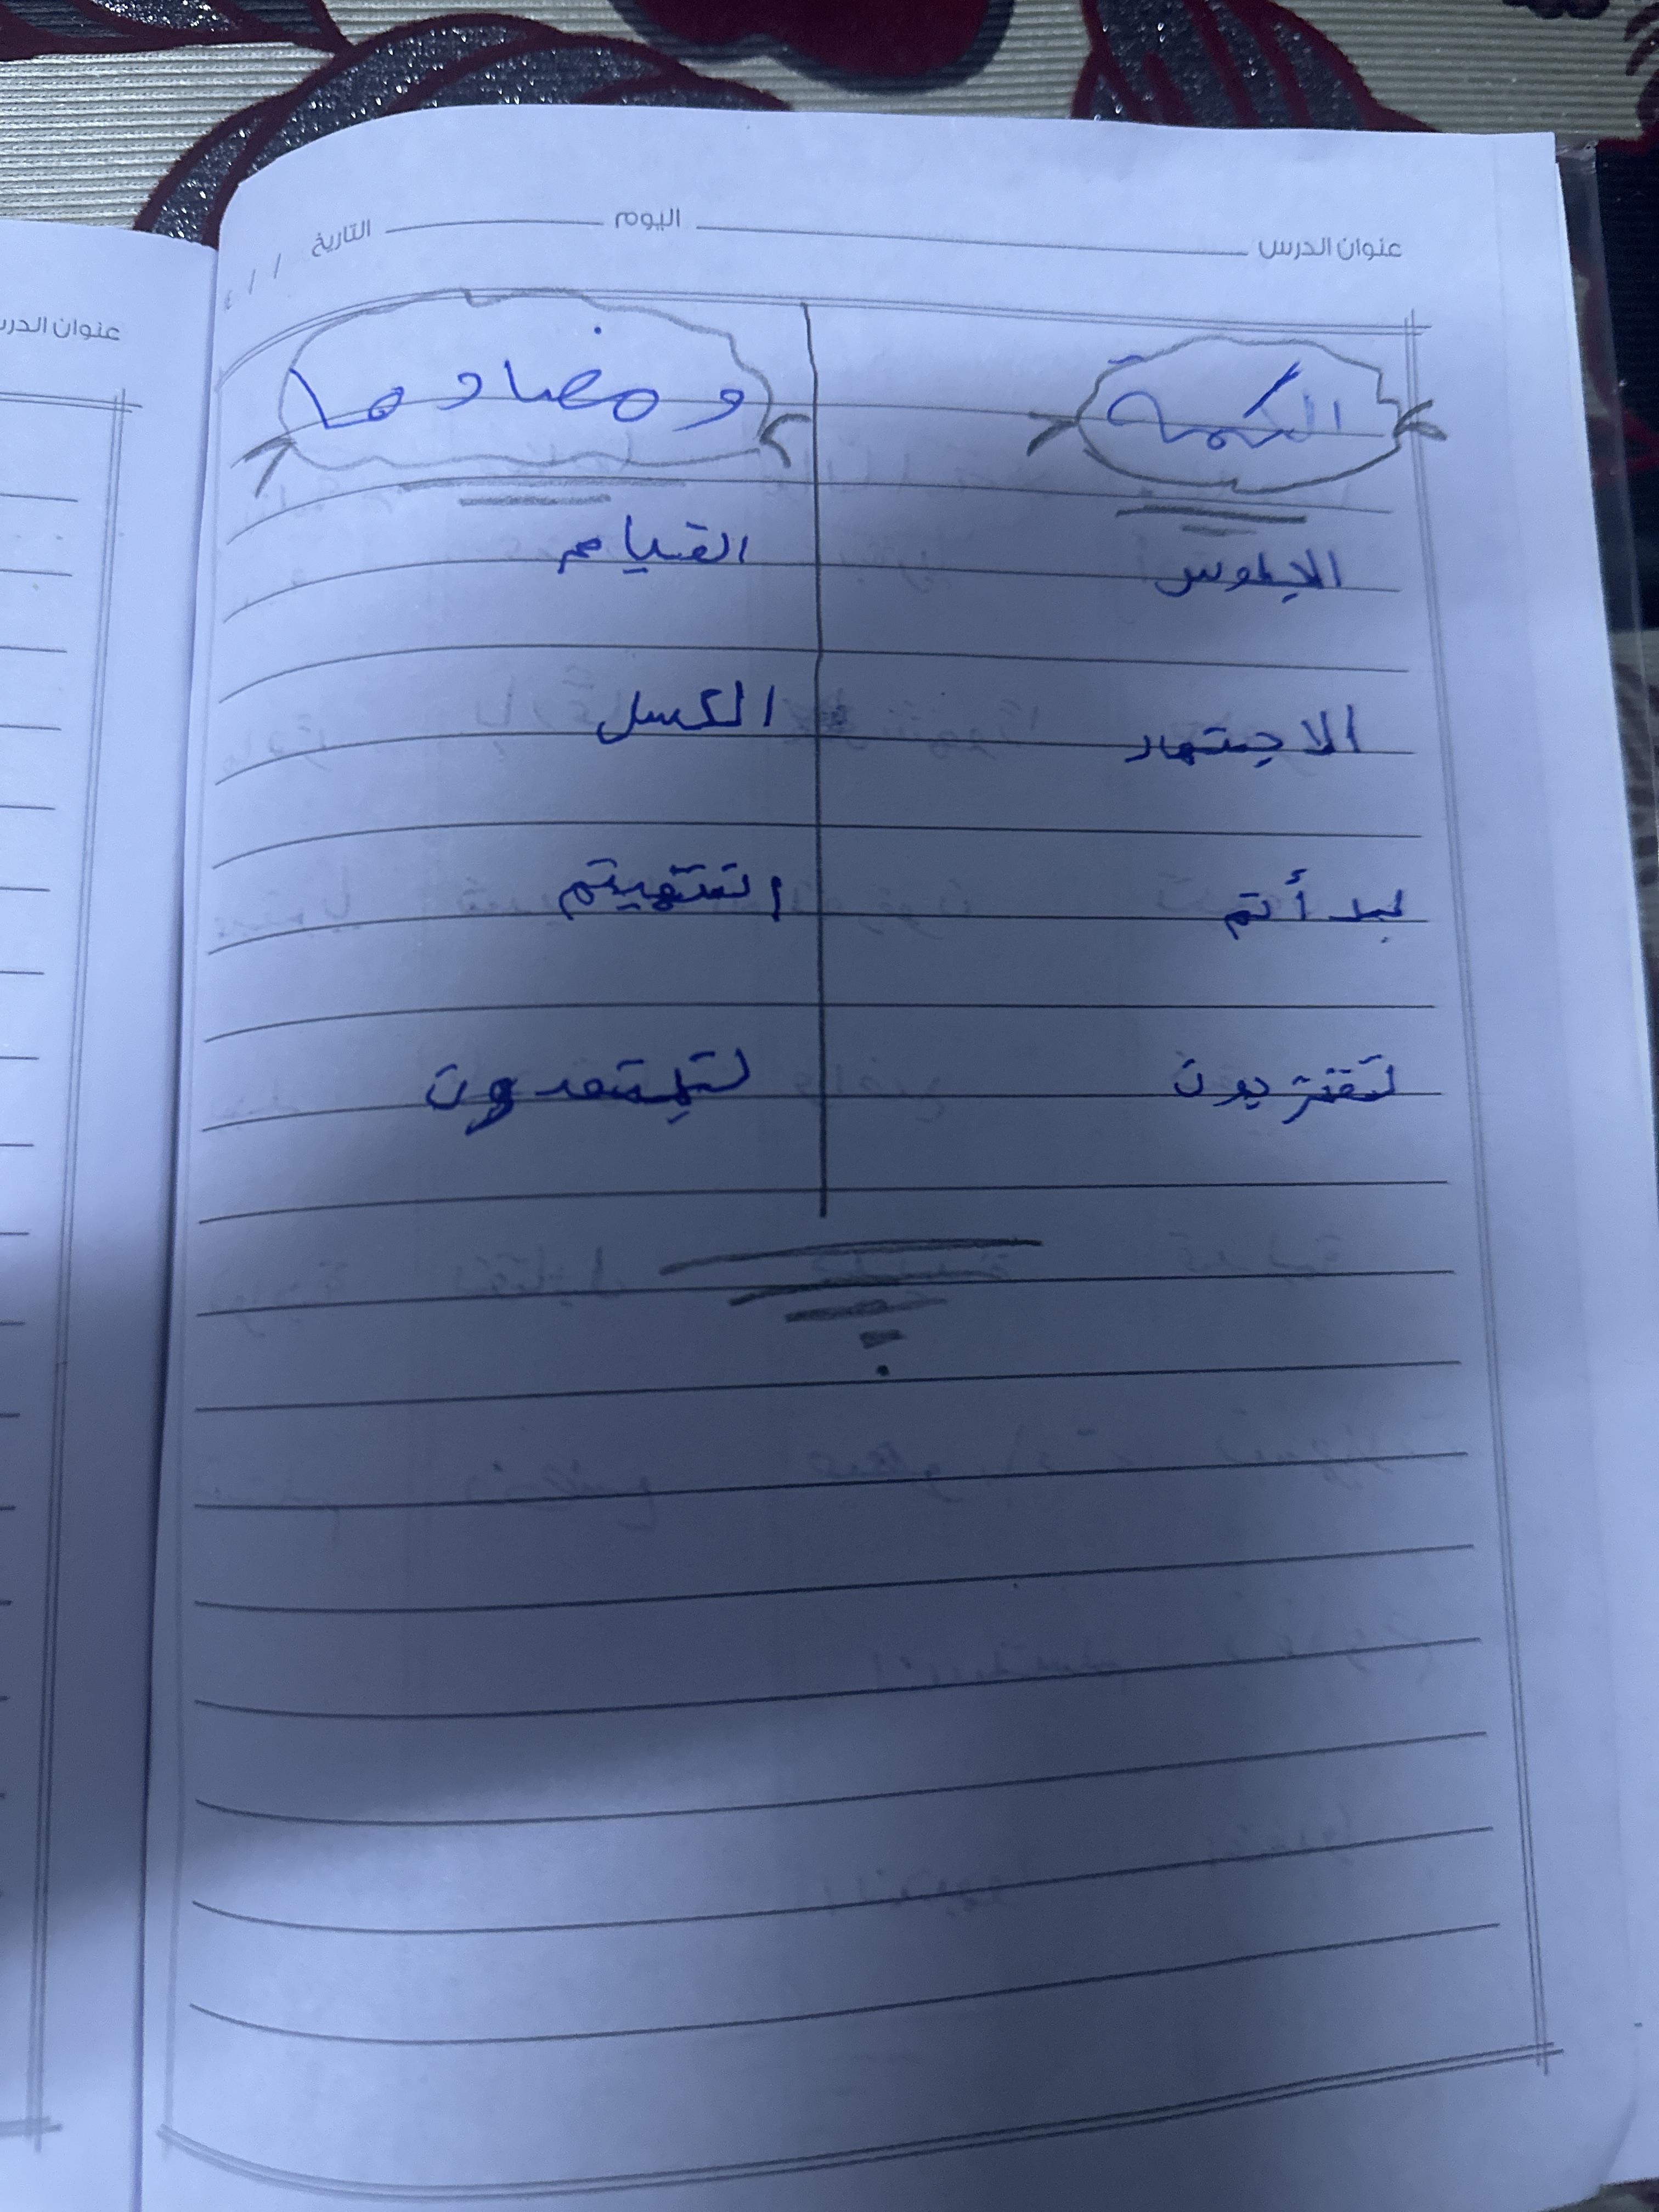 عنوان الدرس اليوم التاريخ / /
عنوان الدرس
الكلمة ومضادها
الجلوس القيام
الاجتهاد الكسل
بدأتم انتهيتم
تقتربون تبتعدون